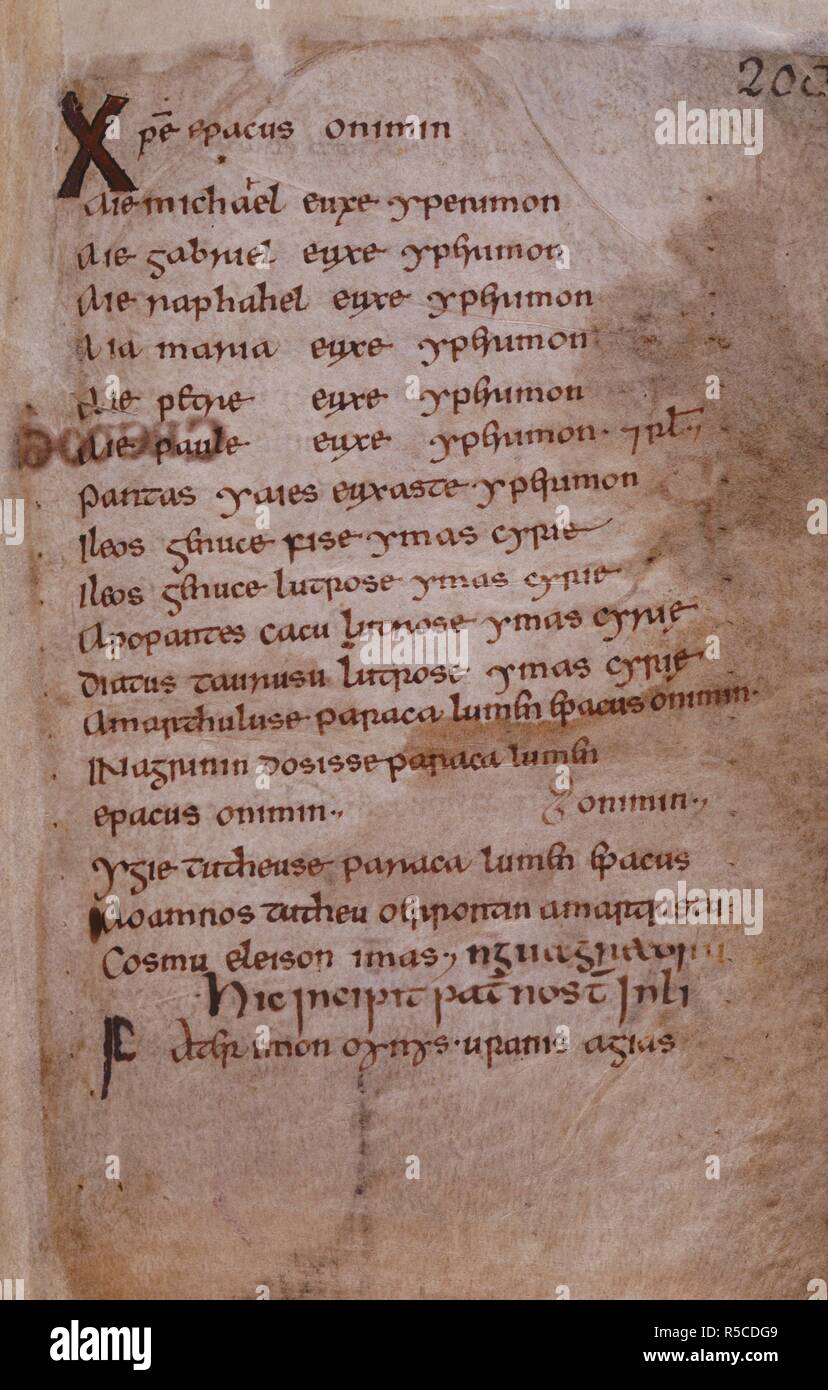 200
Xp̄e epacus onimin
Aie michael euxe yperimon
Aie gabriel euxe yphumon
Aie raphahel euxe yphumon
Aia maria euxe yphumon
Aie petre euxe yphumon
Aie paule euxe yphumon· ⁊rł.,
pantas yaies euxaste· yphumon
Ileos genuce fise ymas cyrie
Ileos genuce lutrose ymas cyrie
Apopantes cacu lutrose ymas cyrie
Diatus taurusu lutrose ymas cyrie
Amarthuluse paraca lumen epacus onimin·
INagrinin dosisse paraca lumen
epacus onimin·, onimin·,
ygie tutheuse paraca lumen epacus
Aoamnos tutheu
Cosmu eleison imas·,
Hic incipit pat̄ nost̄
pAter imon oynys· uranis agias
alamy
Image ID: R5CDG9
www.alamy.com